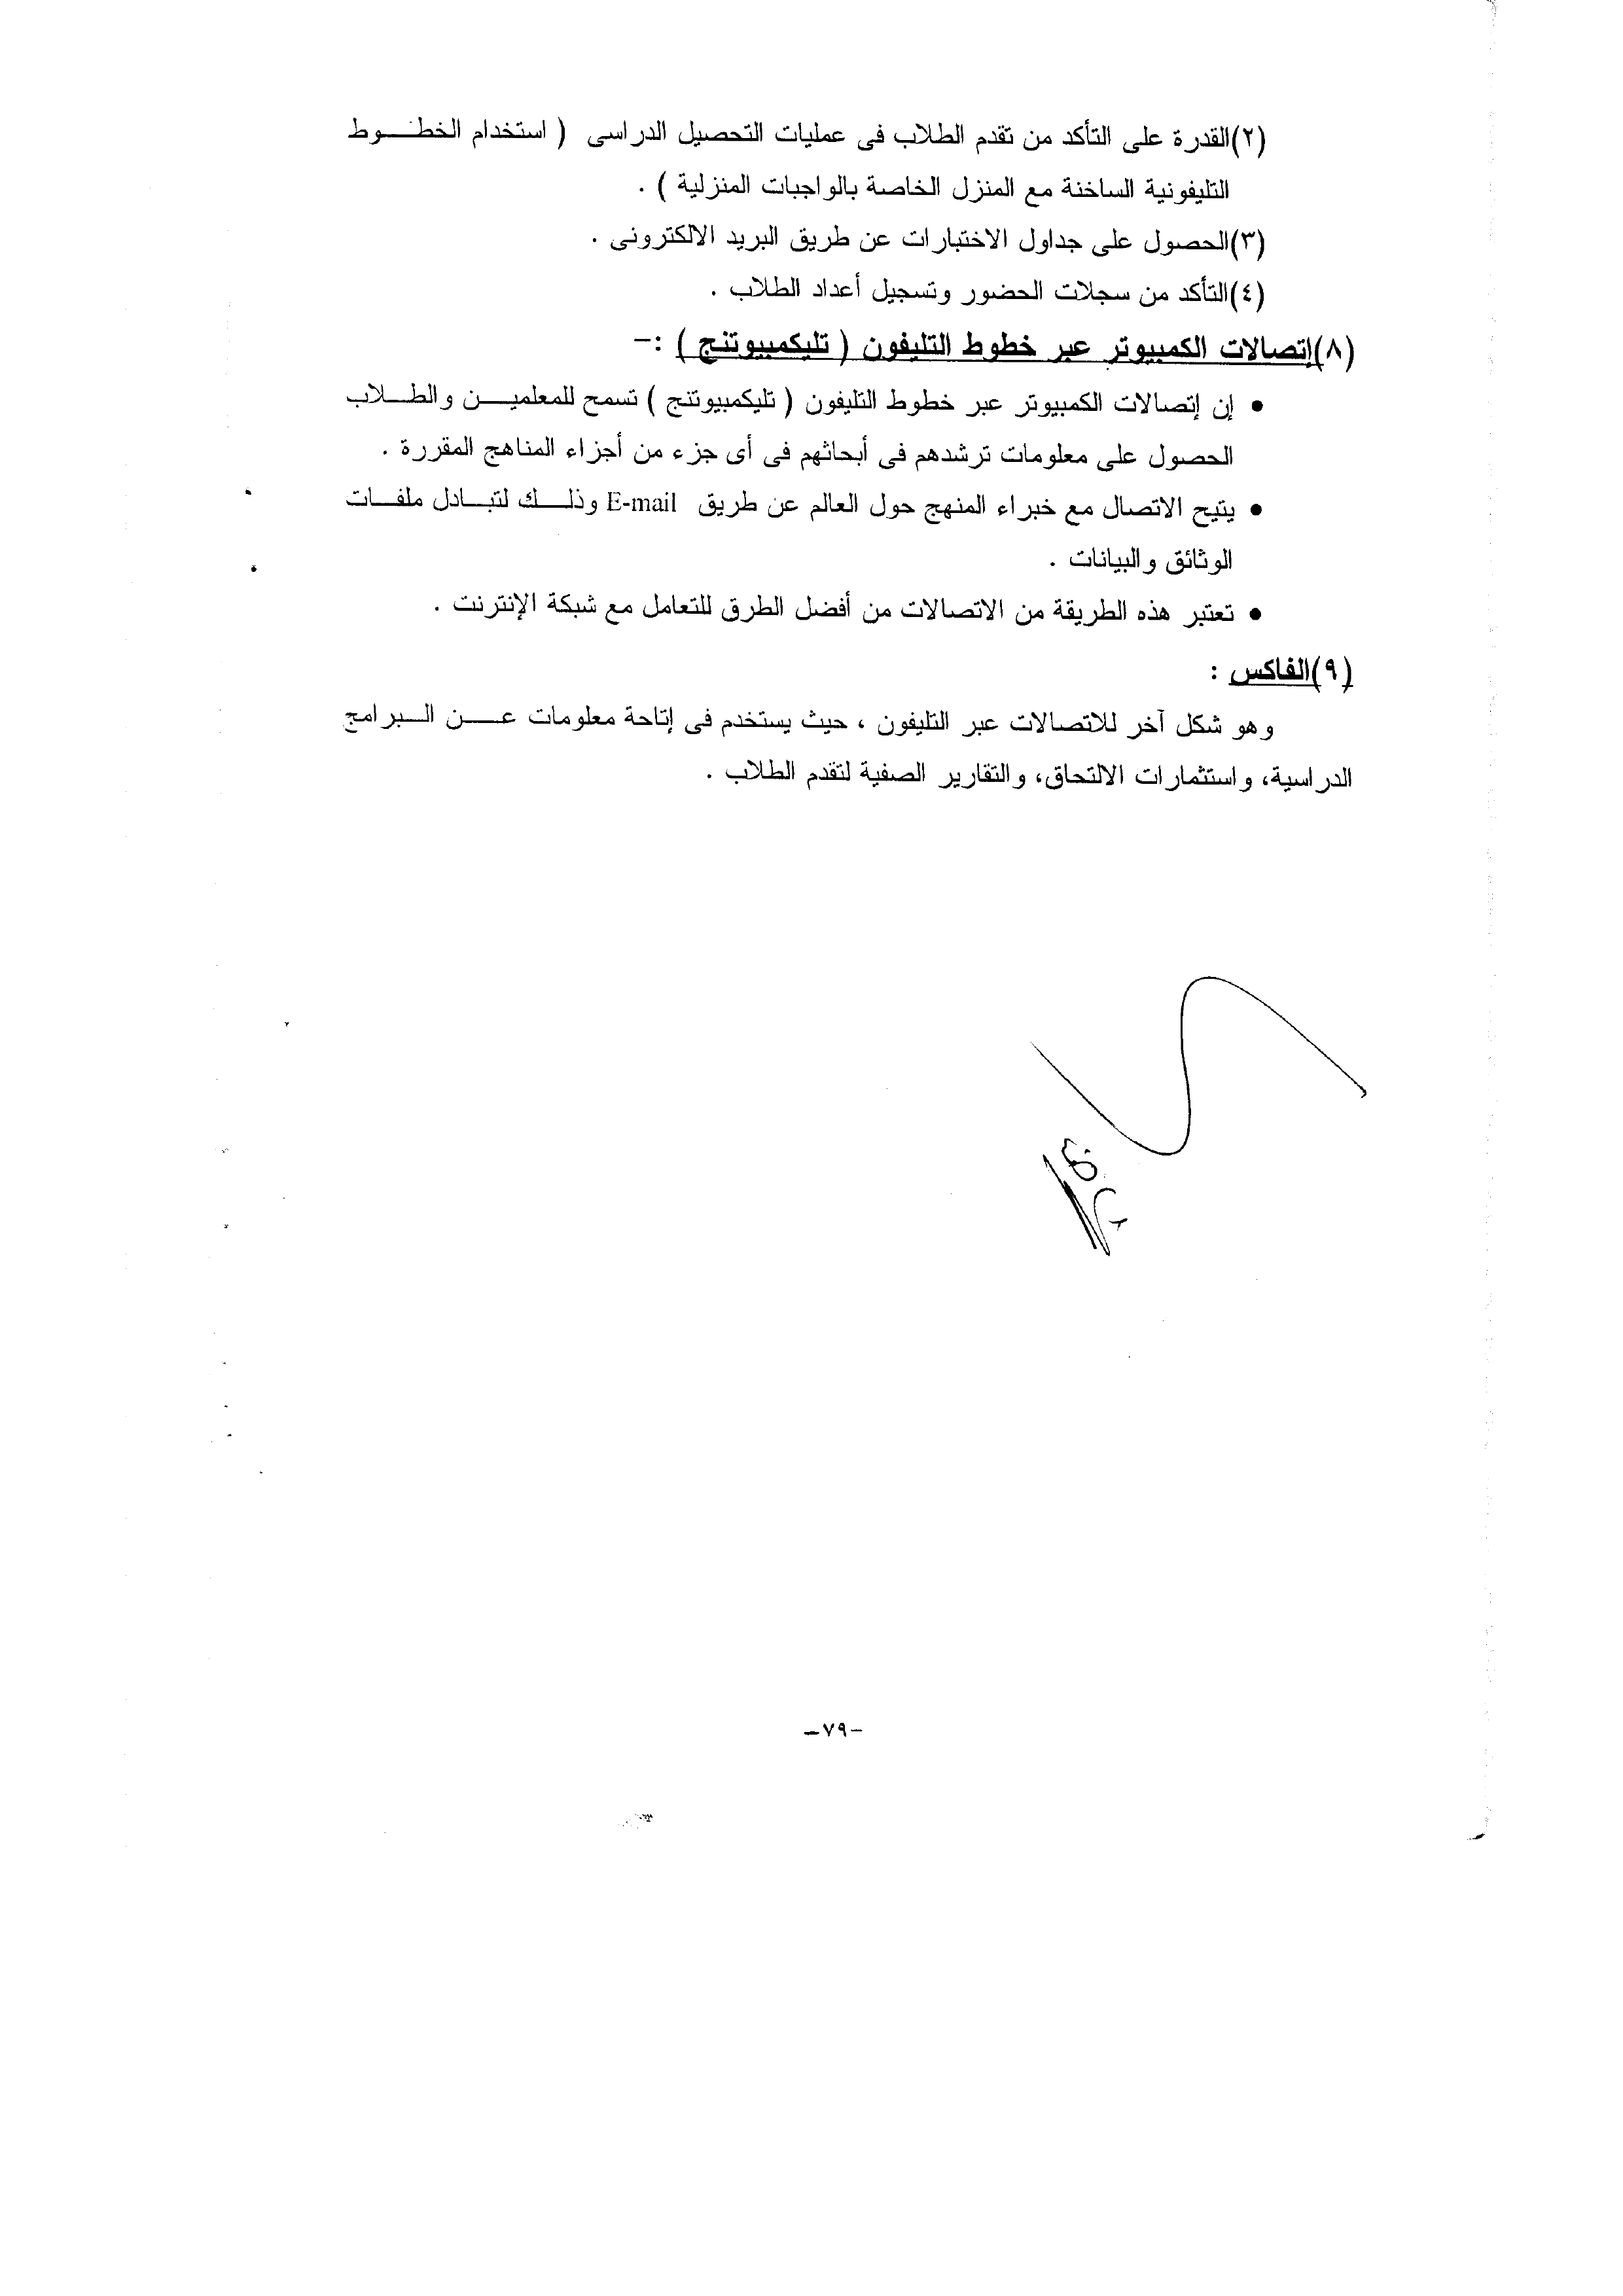 (٢)القدرة على التأكد من تقدم الطلاب فى عمليات التحصيل الدراسى ( استخدام الخطوط
التليفونية الساخنة مع المنزل الخاصة بالواجبات المنزلية ) .
(٣)الحصول على جداول الاختبارات عن طريق البريد الالكترونى .
(٤)التأكد من سجلات الحضور وتسجيل أعداد الطلاب .
(٨)إتصالات الكمبيوتر عبر خطوط التليفون ( تليكمبيوتنج ) :-
• إن إتصالات الكمبيوتر عبر خطوط التليفون ( تليكمبيوتنج ) تسمح للمعلمين والطلاب
الحصول على معلومات ترشدهم فى أبحاثهم فى أى جزء من أجزاء المناهج المقررة .
• يتيح الاتصال مع خبراء المنهج حول العالم عن طريق E-mail وذلك لتبادل ملفات
الوثائق والبيانات .
• تعتبر هذه الطريقة من الاتصالات من أفضل الطرق للتعامل مع شبكة الإنترنت .
(٩)الفاكس :
وهو شكل آخر للاتصالات عبر التليفون ، حيث يستخدم فى إتاحة معلومات عن البرامج
الدراسية، واستثمارات الالتحاق، والتقارير الصفية لتقدم الطلاب .
-٧٩-